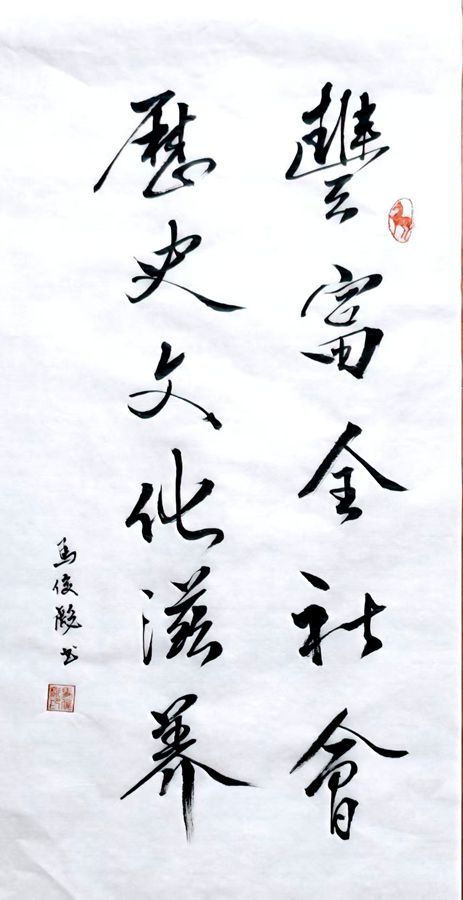 豐富全社會
歷史文化滋養
馬俊